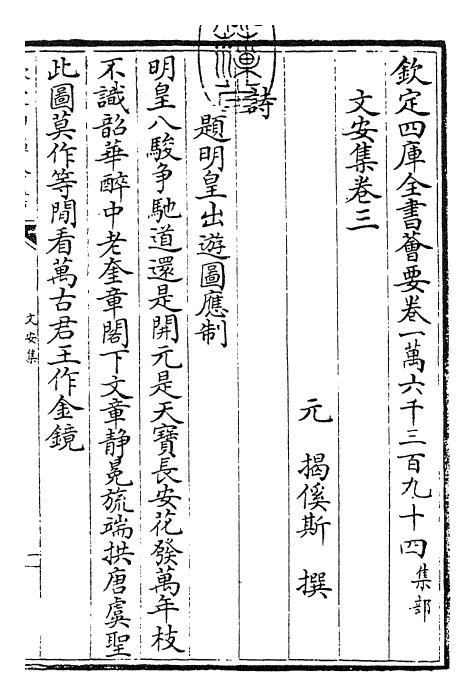 欽定四庫全書薈要卷一萬六千三百九十四集部
文安集卷三
元 揭傒斯 撰
詩
題明皇出遊圖應制
明皇八駿爭馳道還是開元是天寶長安花發萬年枝
不識韶華醉中老奎章閣下文章静冕旒端拱唐虞聖
此圖莫作等閒看萬古君王作金鏡
文安集
一